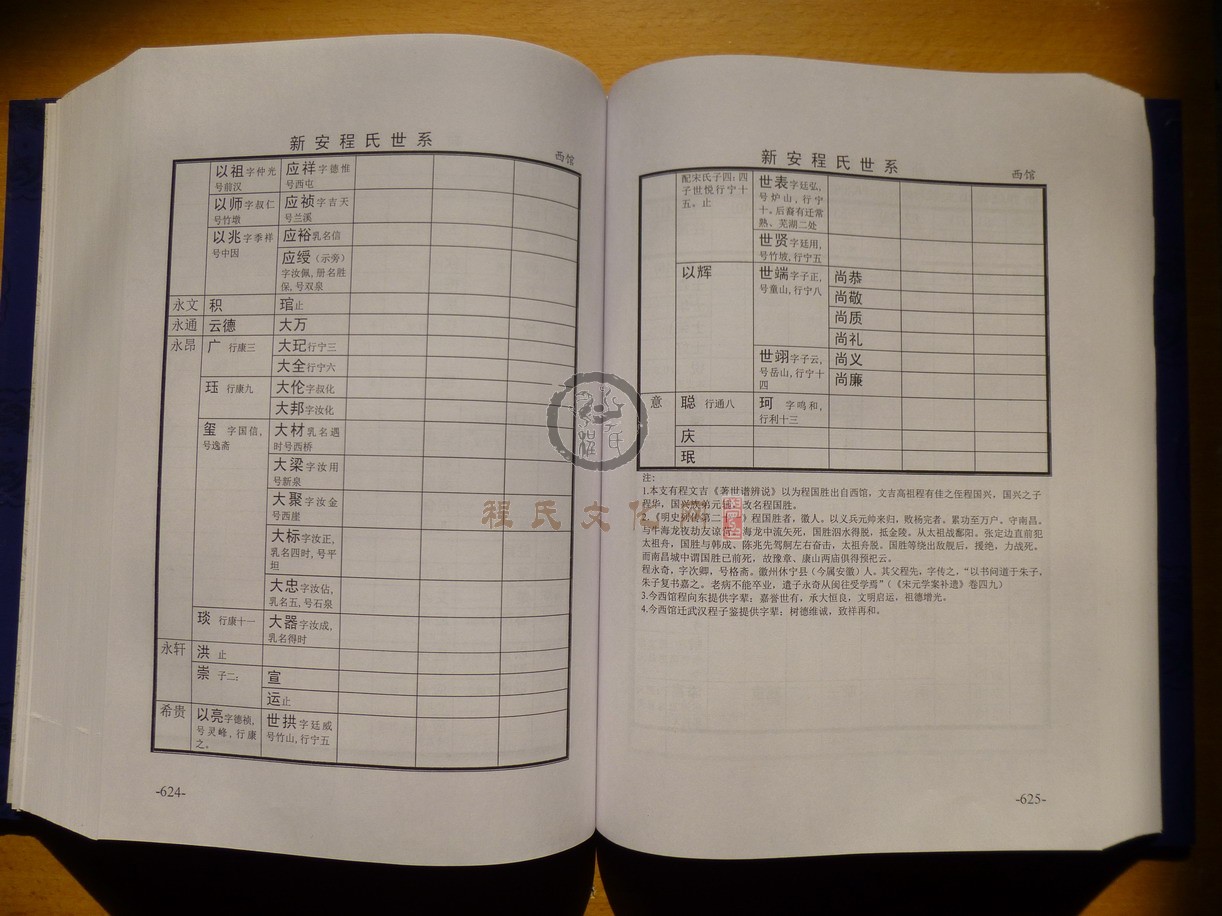 新安程氏世系
西馆
以祖字仲光 应祥字德惟
号前汉 号西屯
以师字叔仁 应祯字吉天
号竹墩 号兰溪
以兆字季祥 应裕乳名信
号中因
应绶（示旁）
字汝佩,册名胜
保,号双泉
永文 积 琯止
永通 云德 大万
永昂 广 行康三 大玘行宁三
大全行宁六
珏 行康九 大伦字叔化
大邦字汝化
玺 字国信, 大材乳名遇
号逸斋 时号西桥
大梁字汝用
号新泉
大聚字汝金
号西崖
大标字汝正,
乳名四时,号平
坦
大忠字汝估,
乳名五,号石泉
琰 行康十一 大器字汝成,
乳名得时
永轩 洪 止
崇 子二: 宣
运止
希贵 以亮字德祯, 世拱字廷威
号灵峰,行康 号竹山,行宁五
之。
-624-
新安程氏世系
西馆
配宋氏子四:四 世表字廷弘,
子世悦行宁十 号炉山,行宁
五。止 十。后裔有迁常
熟、芜湖二处
世贤字廷用,
号竹坡,行宁五
以辉 世端字子正, 尚恭
号童山,行宁八 尚敬
尚质
尚礼
世翊字子云, 尚义
号岳山,行宁十 尚廉
四
意 聪 行通八 珂 字鸣和,
行利十三
庆
珉
注:
1.本支有程文吉《著世谱辨说》以为程国胜出自西馆，文吉高祖程有佳之侄程国兴，国兴之子
程华，国兴族弟元 改名程国胜。
2.《明史列传第二 》程国胜者，徽人。以义兵元帅来归，败杨完者。累功至万户。守南昌。
与牛海龙夜劫友谅 海龙中流矢死，国胜泅水得脱，抵金陵。从太祖战鄱阳。张定边直前犯
太祖舟，国胜与韩成、陈兆先驾舸左右奋击，太祖舟脱。国胜等绕出敌舰后，援绝，力战死。
而南昌城中谓国胜已前死，故豫章、康山两庙俱得预祀云。
程永奇，字次卿，号格斋。徽州休宁县（今属安徽）人。其父程先，字传之，“以书问道于朱子，
朱子复书嘉之。老病不能卒业，遣子永奇从闽往受学焉”（《宋元学案补遗》卷四九）
3.今西馆程向东提供字辈：嘉誉世有，承大恒良，文明启运，祖德增光。
4.今西馆迁武汉程子鉴提供字辈：树德维诚，致祥再和。
-625-
程氏文化网